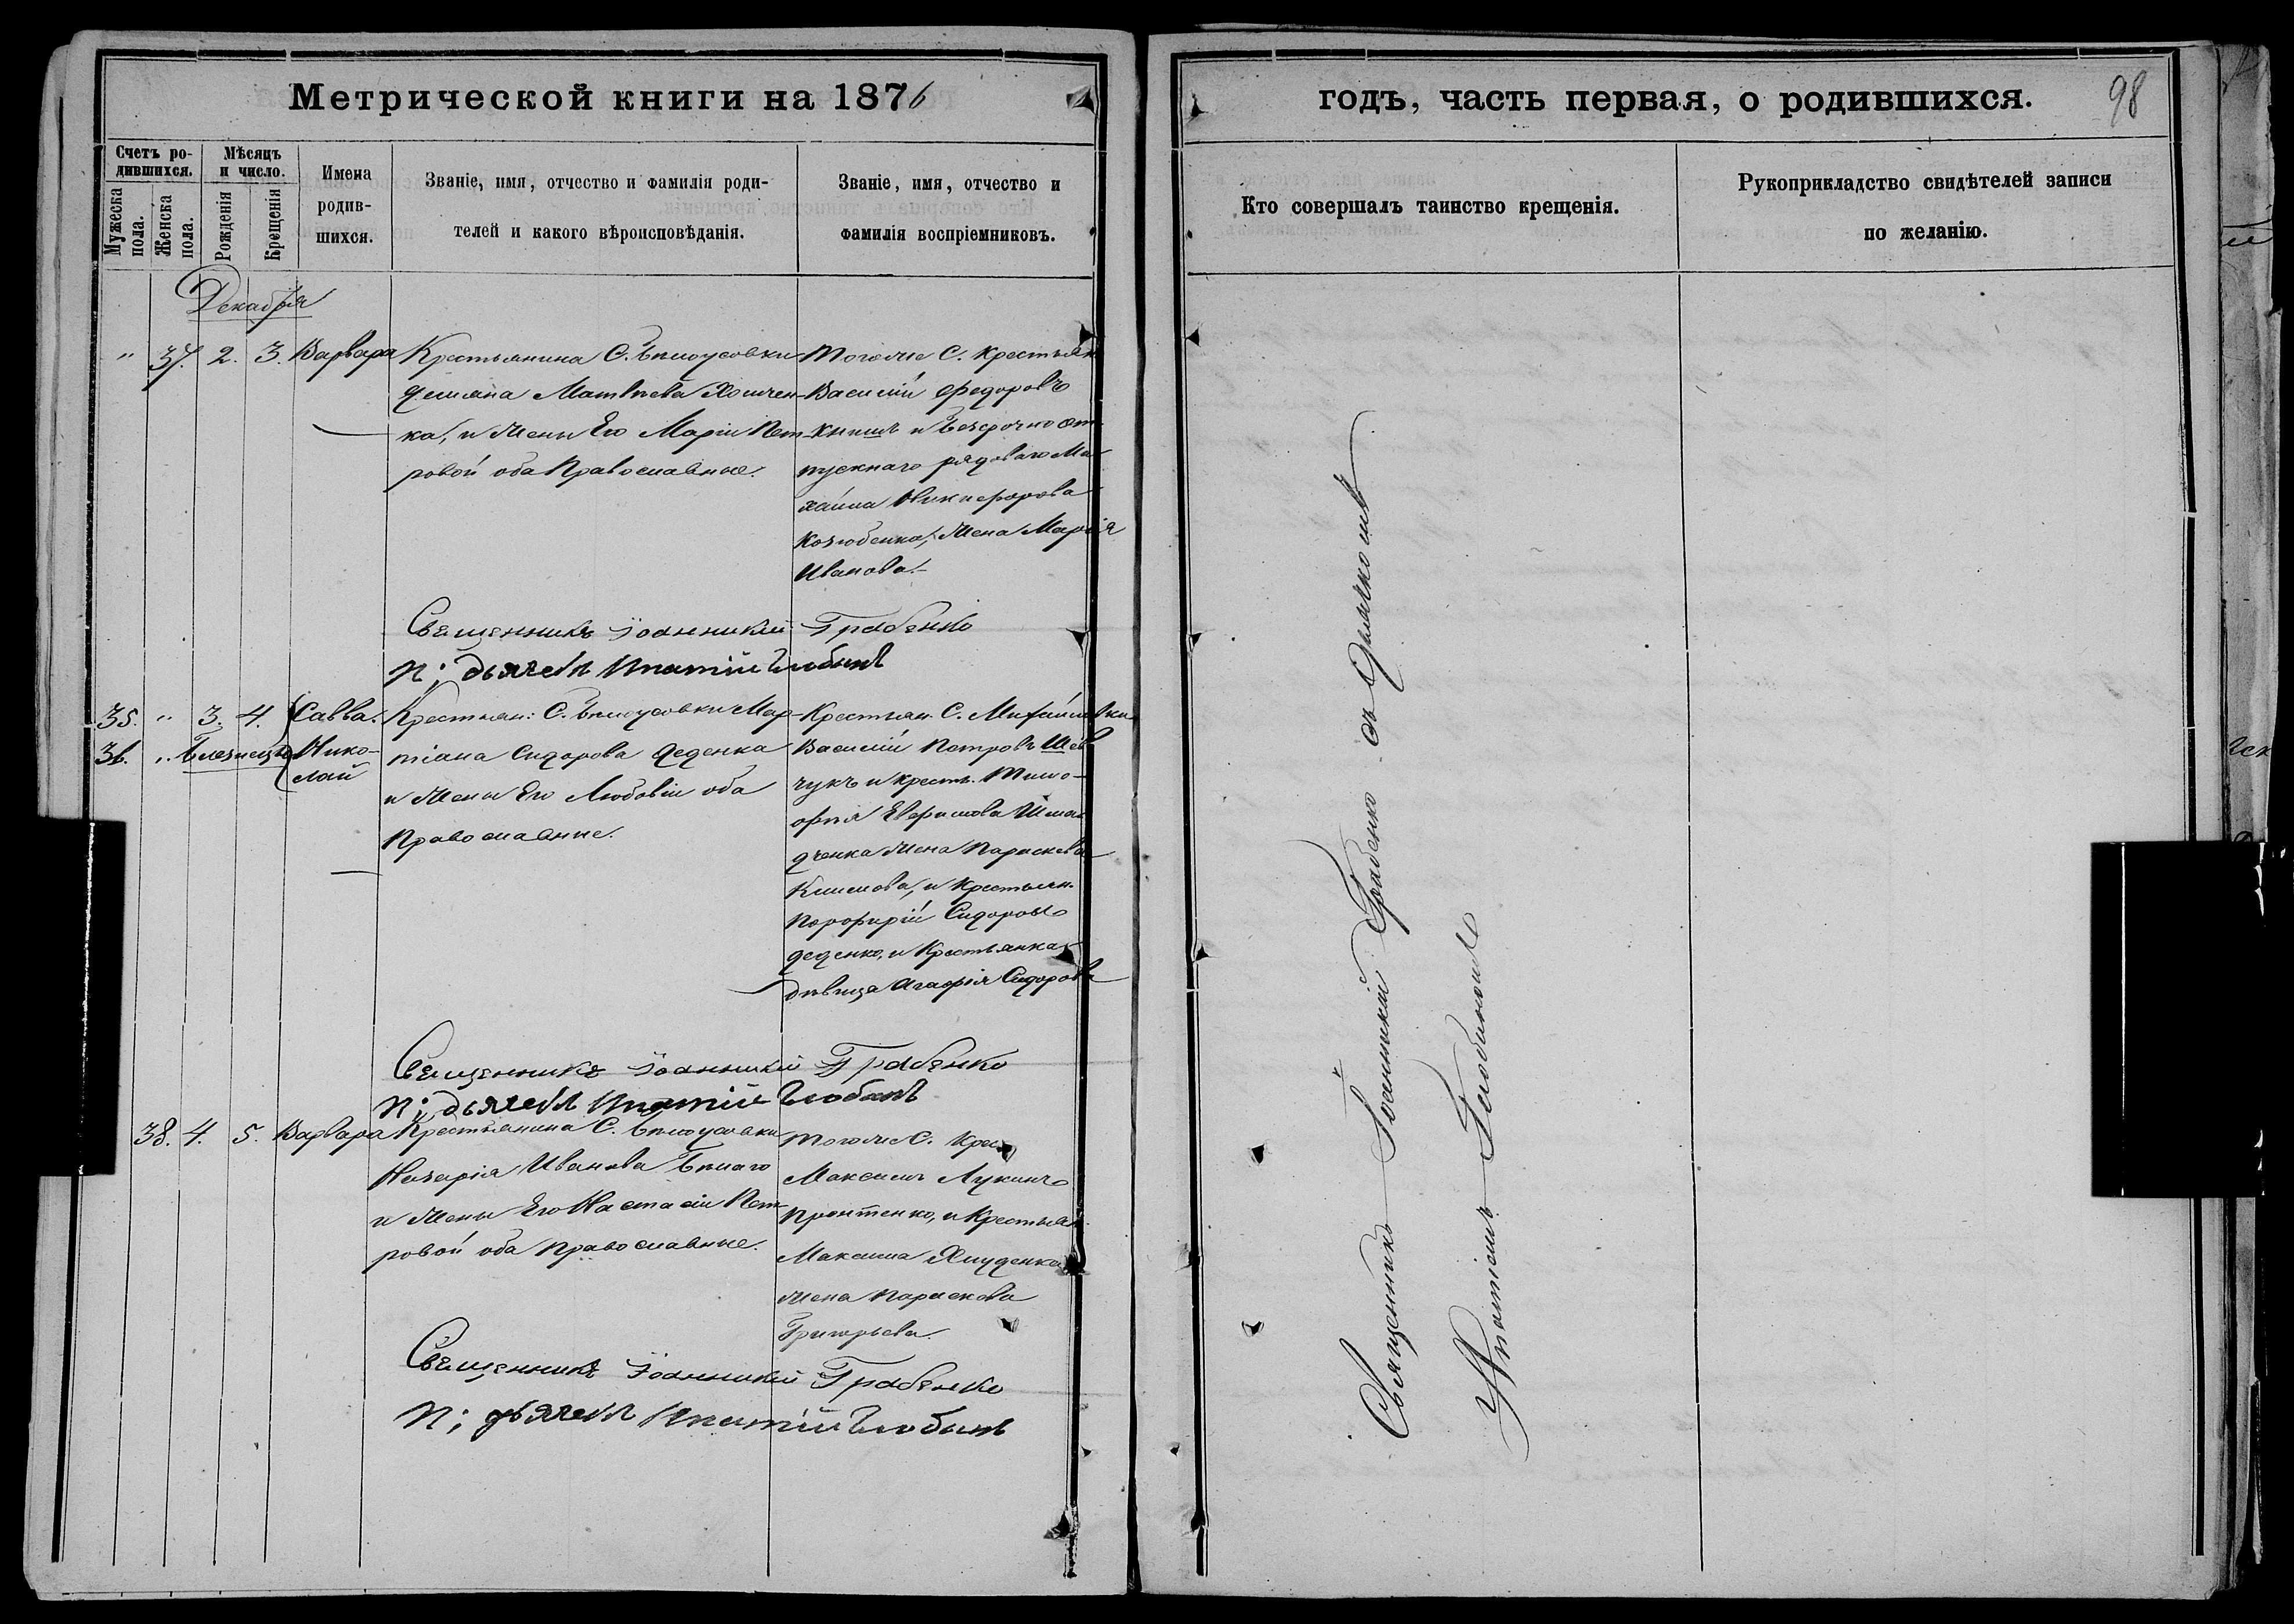 Метрической книги на 1876
годъ, часть первая, о родившихся.
98
Счетъ ро-
дившихся.
Мужеска
пола.
Женска
пола.
Мѣсяцъ
и число.
Рожденія
Крещенія
Имена
родив-
шихся.
Званіе, имя, отчество и фамилія роди-
телей и какого вѣроисповѣданія.
Званіе, имя, отчество и
фамилія воспріемниковъ.
Кто совершалъ таинство крещенія.
Рукоприкладство свидѣтелей записи
по желанію.
Декабря
" 37. 2. 3. Варвара
Крестьянина С. Бѣлоусовки
Матвѣева
ка, и жены Его Маріи Пет-
ровой оба Православные.
Тогоже С. крестьян
Василій Федоровъ
и безсрочно от-
пускнаго рядоваго Ми-
хаила Никифорова
жена Марія
Иванова.
Священникъ Іоанникій Грабенко
П: дьячекъ Ипатій Глобинъ
35. " 3. 4. Савва.
36. " Близнецы Нико-
лай
Крестьян: С. Бѣлоусовки Мар-
тіана Сидорова Деденка
и жены Его Любовіи оба
Православные.
Крестьян. С. Михайловки
Василій Петровъ Шев
чукъ и крест. Тимо-
фея Евфимова
жена Параскева
Климова, и Крестьян.
Порфирій Сидоровъ
Деденко, и Крестьянка
дѣвица Агафія Сидорова
Священникъ Іоанникій Грабенко
П: дьячекъ Ипатій Глобинъ
38. 4. 5. Варвара
Крестьянина С. Бѣлоусовки
Назарія Иванова Бѣлаго
и жены Его Настасіи Пет-
ровой оба православные.
Тогоже С. Крес
Максимъ Лукинъ
и Крестьян.
Максима
жена Параскева
Григорьева.
Священникъ Іоанникій Грабенко
П: дьячекъ Ипатій Глобинъ
Священникъ Іоанникій Грабенко съ Дьячкомъ
Ипатіемъ Глобиномъ